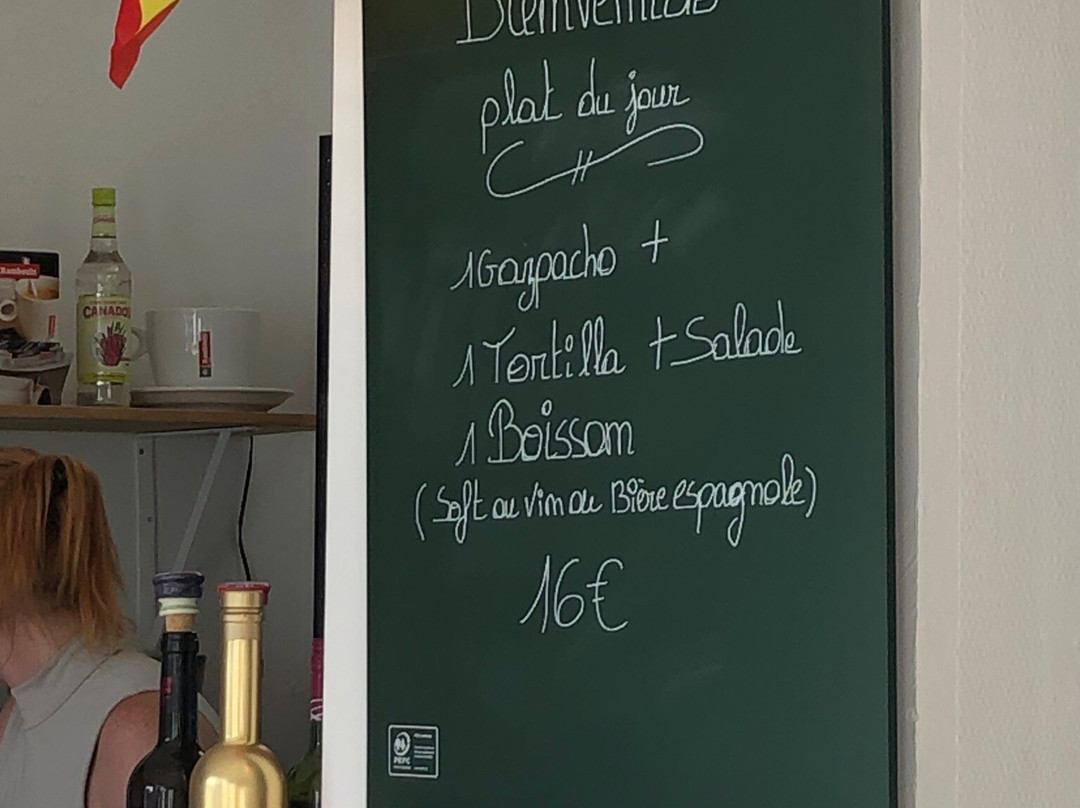 Bienvenidos
plat du jour
1 Gazpacho +
1 Tortilla + Salade
1 Boisson
(Soft ou vin ou Bière espagnole)
16€
PEFC
CANADOU
Rombouts
Rombouts